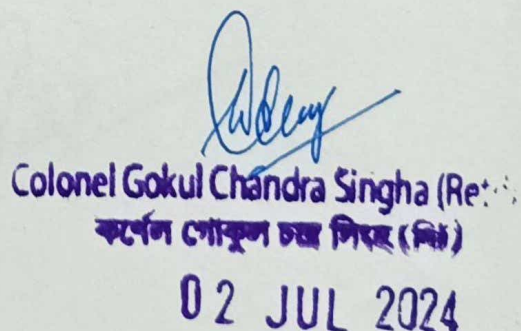 Colonel Gokul Chandra Singha (Ret
কর্ণেল গোকুল চন্দ্র
02 JUL 2024